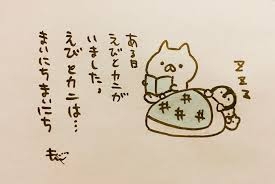 ある日
えびとカニが
いました。
えびとカニは…
まいにちまいにち
z z z